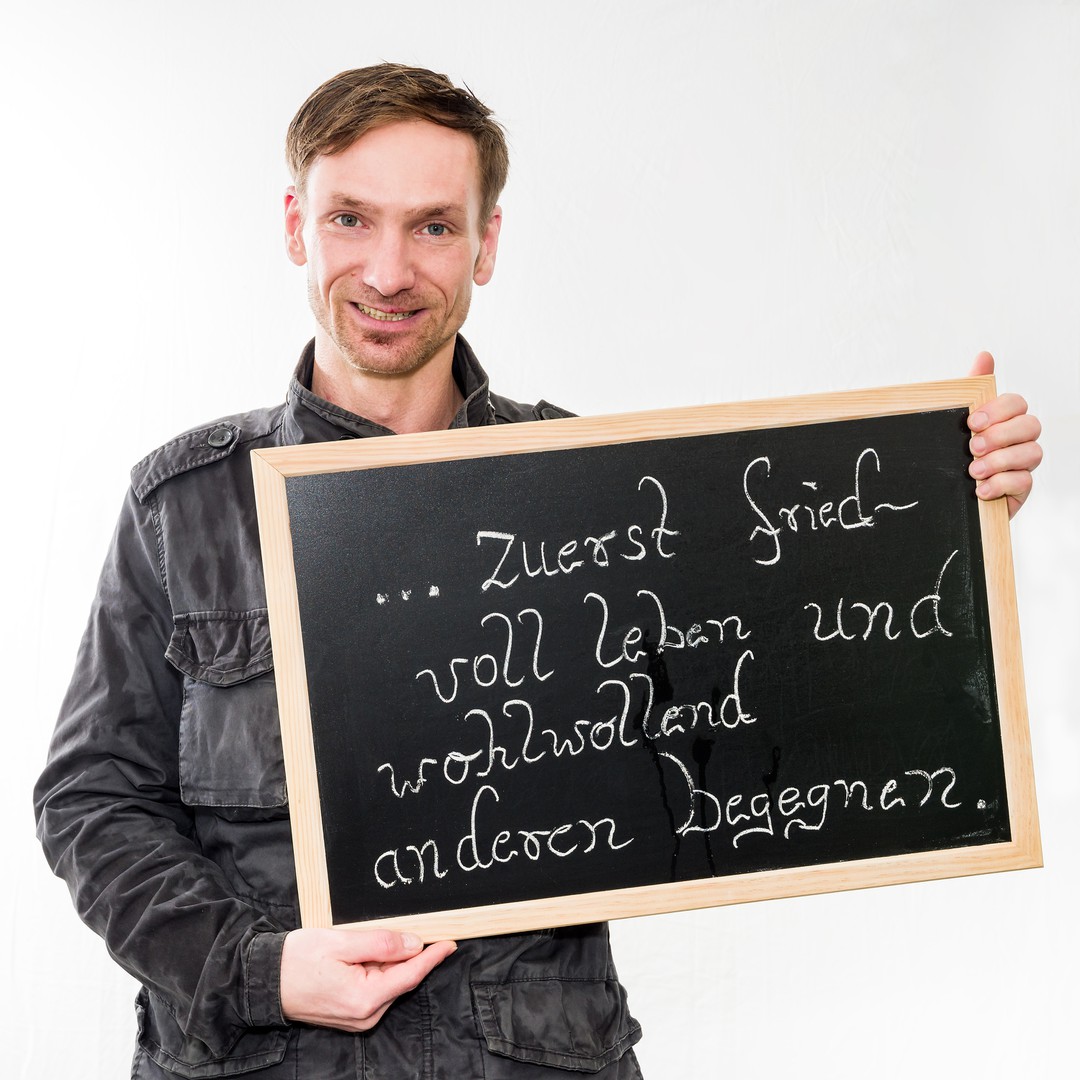 ... zuerst fried-
voll leben und
wohlwollend
anderen begegnen.